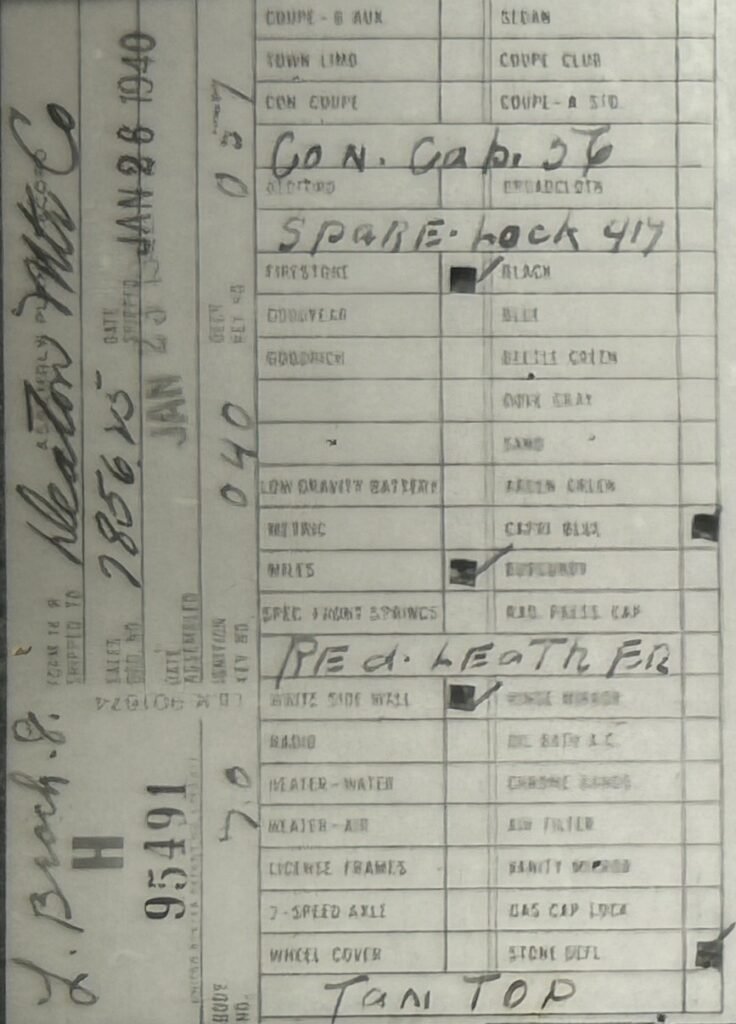 COUPE - 6 AUX SEDAN
TOWN LIMO COUPE CLUB
CON COUPE COUPE - A STD.
CON. Cab. 56
BROADCLOTH
SPARE. Lock 417
FIRESTONE BLACK
GOODYEAR BLUE
GOODRICH GREEN
DOVE GRAY
SAND
LOW GRAVITY BATTERY GREEN
METRIC CAPRI BLUE
MILES BURGUNDY
SPEC FRONT SPRINGS RAD PRESS CAP
REd. LEATHER
WHITE SIDE WALL MIRROR
RADIO OIL BATH A.C.
HEATER - WATER CHROME BANDS
HEATER - AIR AIR FILTER
LICENSE FRAMES VANITY MIRROR
2-SPEED AXLE GAS CAP LOCK
WHEEL COVER STONE DEFL
TAN TOP
SHIPPED TO Deaton Mtr Co
785625
DATE SHIPPED JAN 26 1940
DATE ASSEMBLED JAN
IGNITION KEY NO 040
DECK KEY NO 037
BODY NO. 70
H
95491